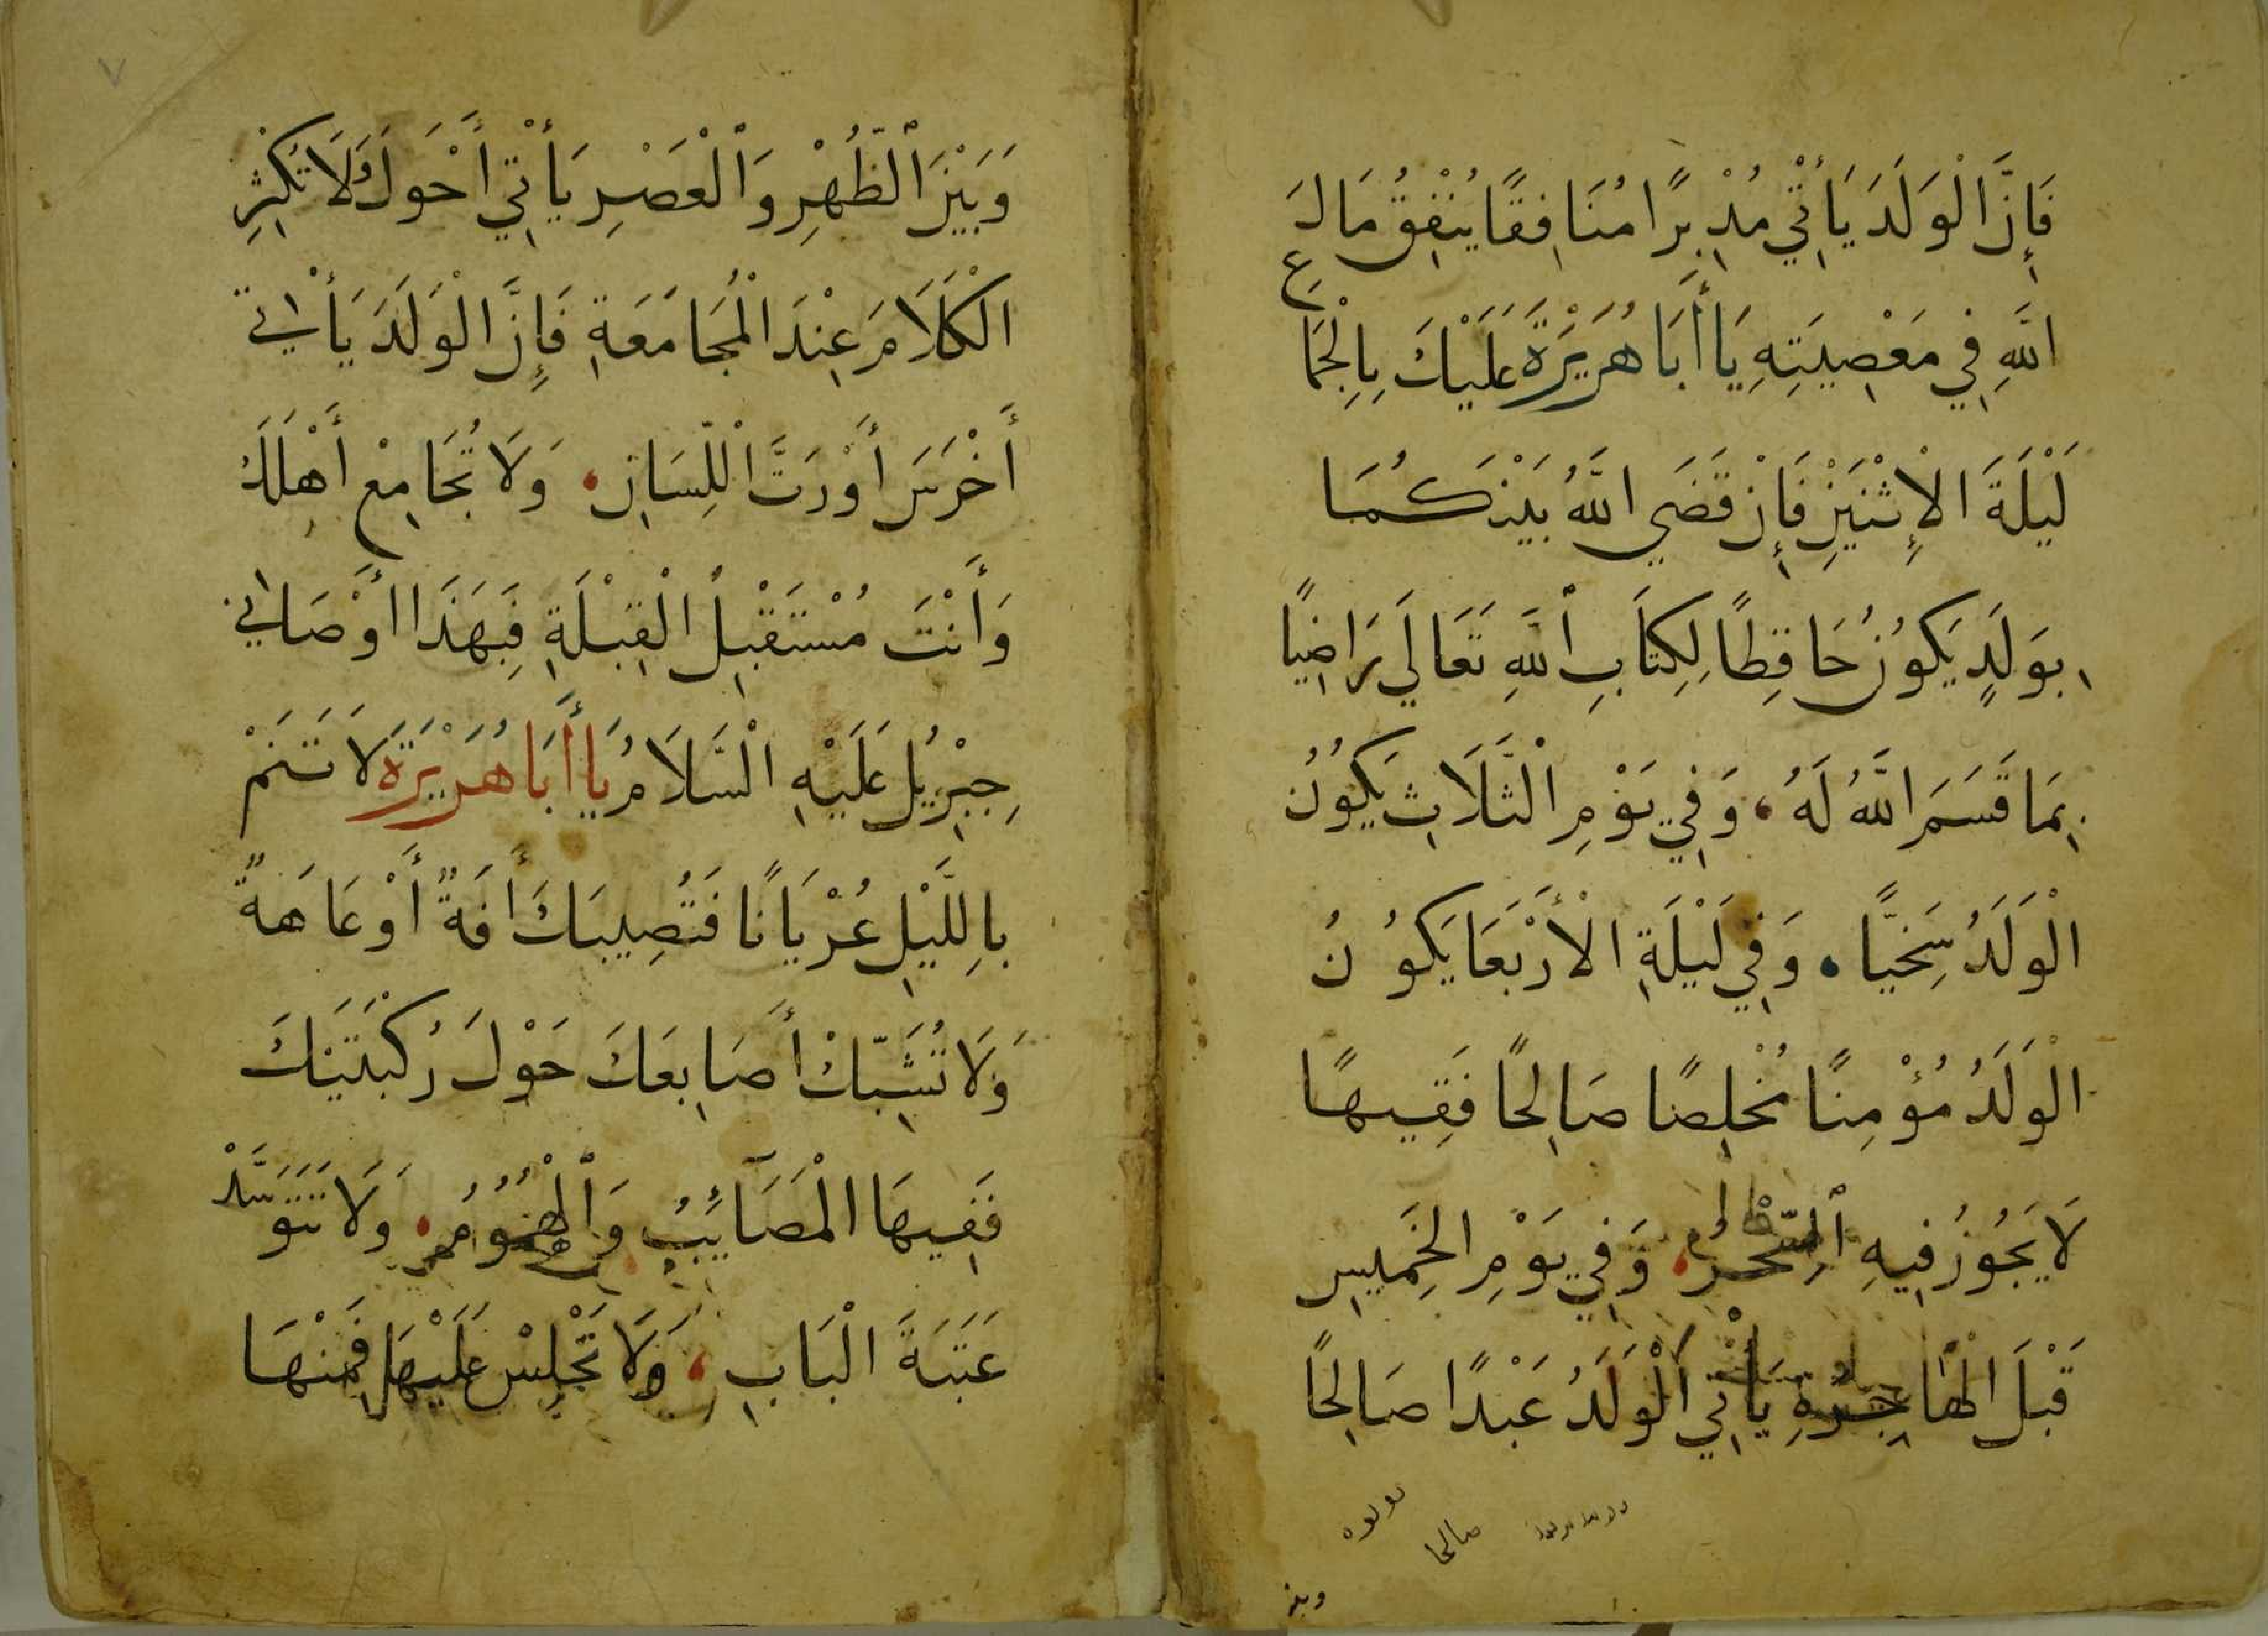 فَإِنَّ الْوَلَدَ يَأْتِي مُدْبِرًا مُنَافِقًا يُنْفِقُ مَالَ
اللَّهِ فِي مَعْصِيَتِهِ يَا أَبَا هُرَيْرَةَ عَلَيْكَ بِالْجِمَاعِ
لَيْلَةَ الْإِثْنَيْنِ فَإِنْ قَضَي اللَّهُ بَيْنَكُمَا
بِوَلَدٍ يَكُونُ حَافِظًا لِكِتَابِ اللَّهِ تَعَالَي رَاضِيًا
بِمَا قَسَمَ اللَّهُ لَهُ، وَفِي يَوْمِ الثَّلَاثِ يَكُونُ
الْوَلَدُ سَخِيًّا. وَفِي لَيْلَةِ الْأَرْبَعَا يَكُونُ
الْوَلَدُ مُؤْمِنًا مُخْلِصًا صَالِحًا فَقِيهًا
لَا يَجُوزُ فِيهِ السِّحْرُ، وَفِي يَوْمِ الْخَمِيسِ
قَبْلَ الْهَاجِرَةِ يَأْتِي الْوَلَدُ عَبْدًا صَالِحًا
صالحا
وبين
٧
وَبَيْنَ الظُّهْرِ وَالْعَصْرِ يَأْتِي أَحْوَلَ وَلَا تُكْثِرِ
الْكَلَامَ عِنْدَ الْمُجَامَعَةِ فَإِنَّ الْوَلَدَ يَأْتِي
أَخْرَسَ أَوْ رَتَّ اللِّسَانِ. وَلَا تُجَامِعْ أَهْلَكَ
وَأَنْتَ مُسْتَقْبِلُ الْقِبْلَةِ فَبِهَذَا أَوْصَانِي
جِبْرِيلُ عَلَيْهِ السَّلَامُ يَا أَبَا هُرَيْرَةَ لَا تَنَمْ
بِاللَّيْلِ عُرْيَانًا فَتُصِيبَكَ أَفَةٌ أَوْ عَاهَةٌ
وَلَا تُشَبِّكْ أَصَابِعَكَ حَوْلَ رُكْبَتَيْكَ
فَفِيهَا الْمَصَآئِبُ وَالْهُمُومُ. وَلَا تَتَوَسَّدْ
عَتَبَةَ الْبَابِ، وَلَا تَجْلِسْ عَلَيْهَا فَمِنْهَا